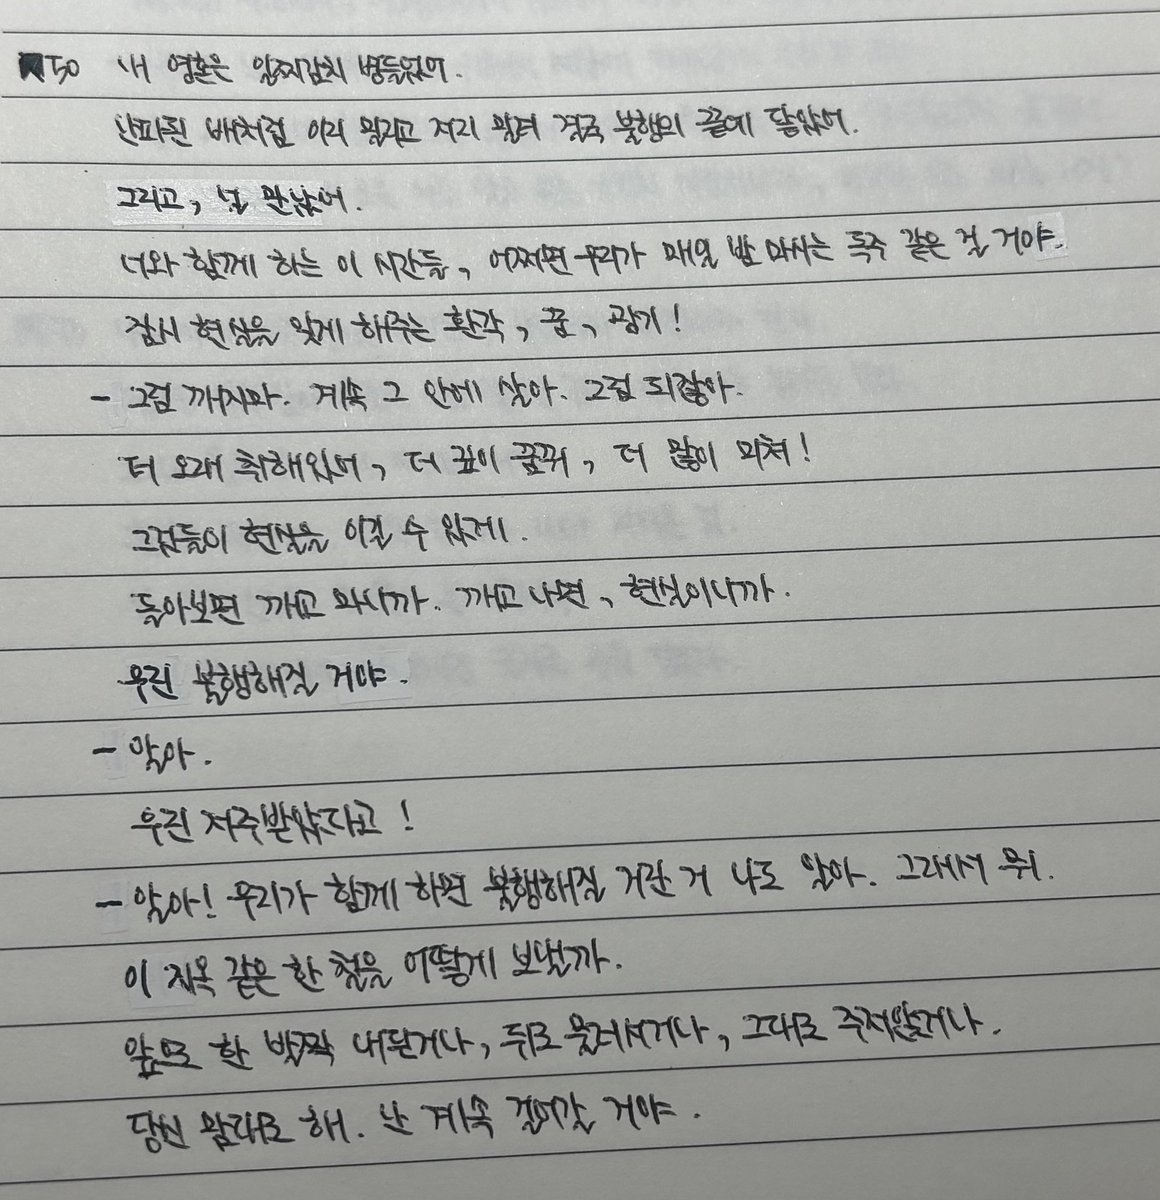 50 내 영혼은 일찌감치 병들었어.
난파된 배처럼 이리 밀리고 저리 밀려 결국 불행의 끝에 닿았어.
그리고, 널 만났어.
너와 함께 하는 이 시간들, 어쩌면 우리가 매일 밤 마시는 독주 같은 걸 거야.
잠시 현실을 잊게 해주는 환각, 꿈, 광기!
- 그럼 깨지마. 계속 그 안에 살아. 그럼 되잖아.
더 오래 취해있어, 더 깊이 꿈꿔, 더 많이 미쳐!
그것들이 현실을 이길 수 있게.
돌아보면 깨고 마니까. 깨고 나면, 현실이니까.
우린 불행해질 거야.
- 알아.
우린 저주받았다고!
- 알아! 우리가 함께 하면 불행해질 거란 거 나도 알아. 그래서 뭐.
이 지옥 같은 한 철을 어떻게 보낼까.
앞으로 한 발짝 내딛거나, 뒤로 물러서거나, 그대로 주저앉거나.
당신 맘대로 해. 난 계속 걸어갈 거야.